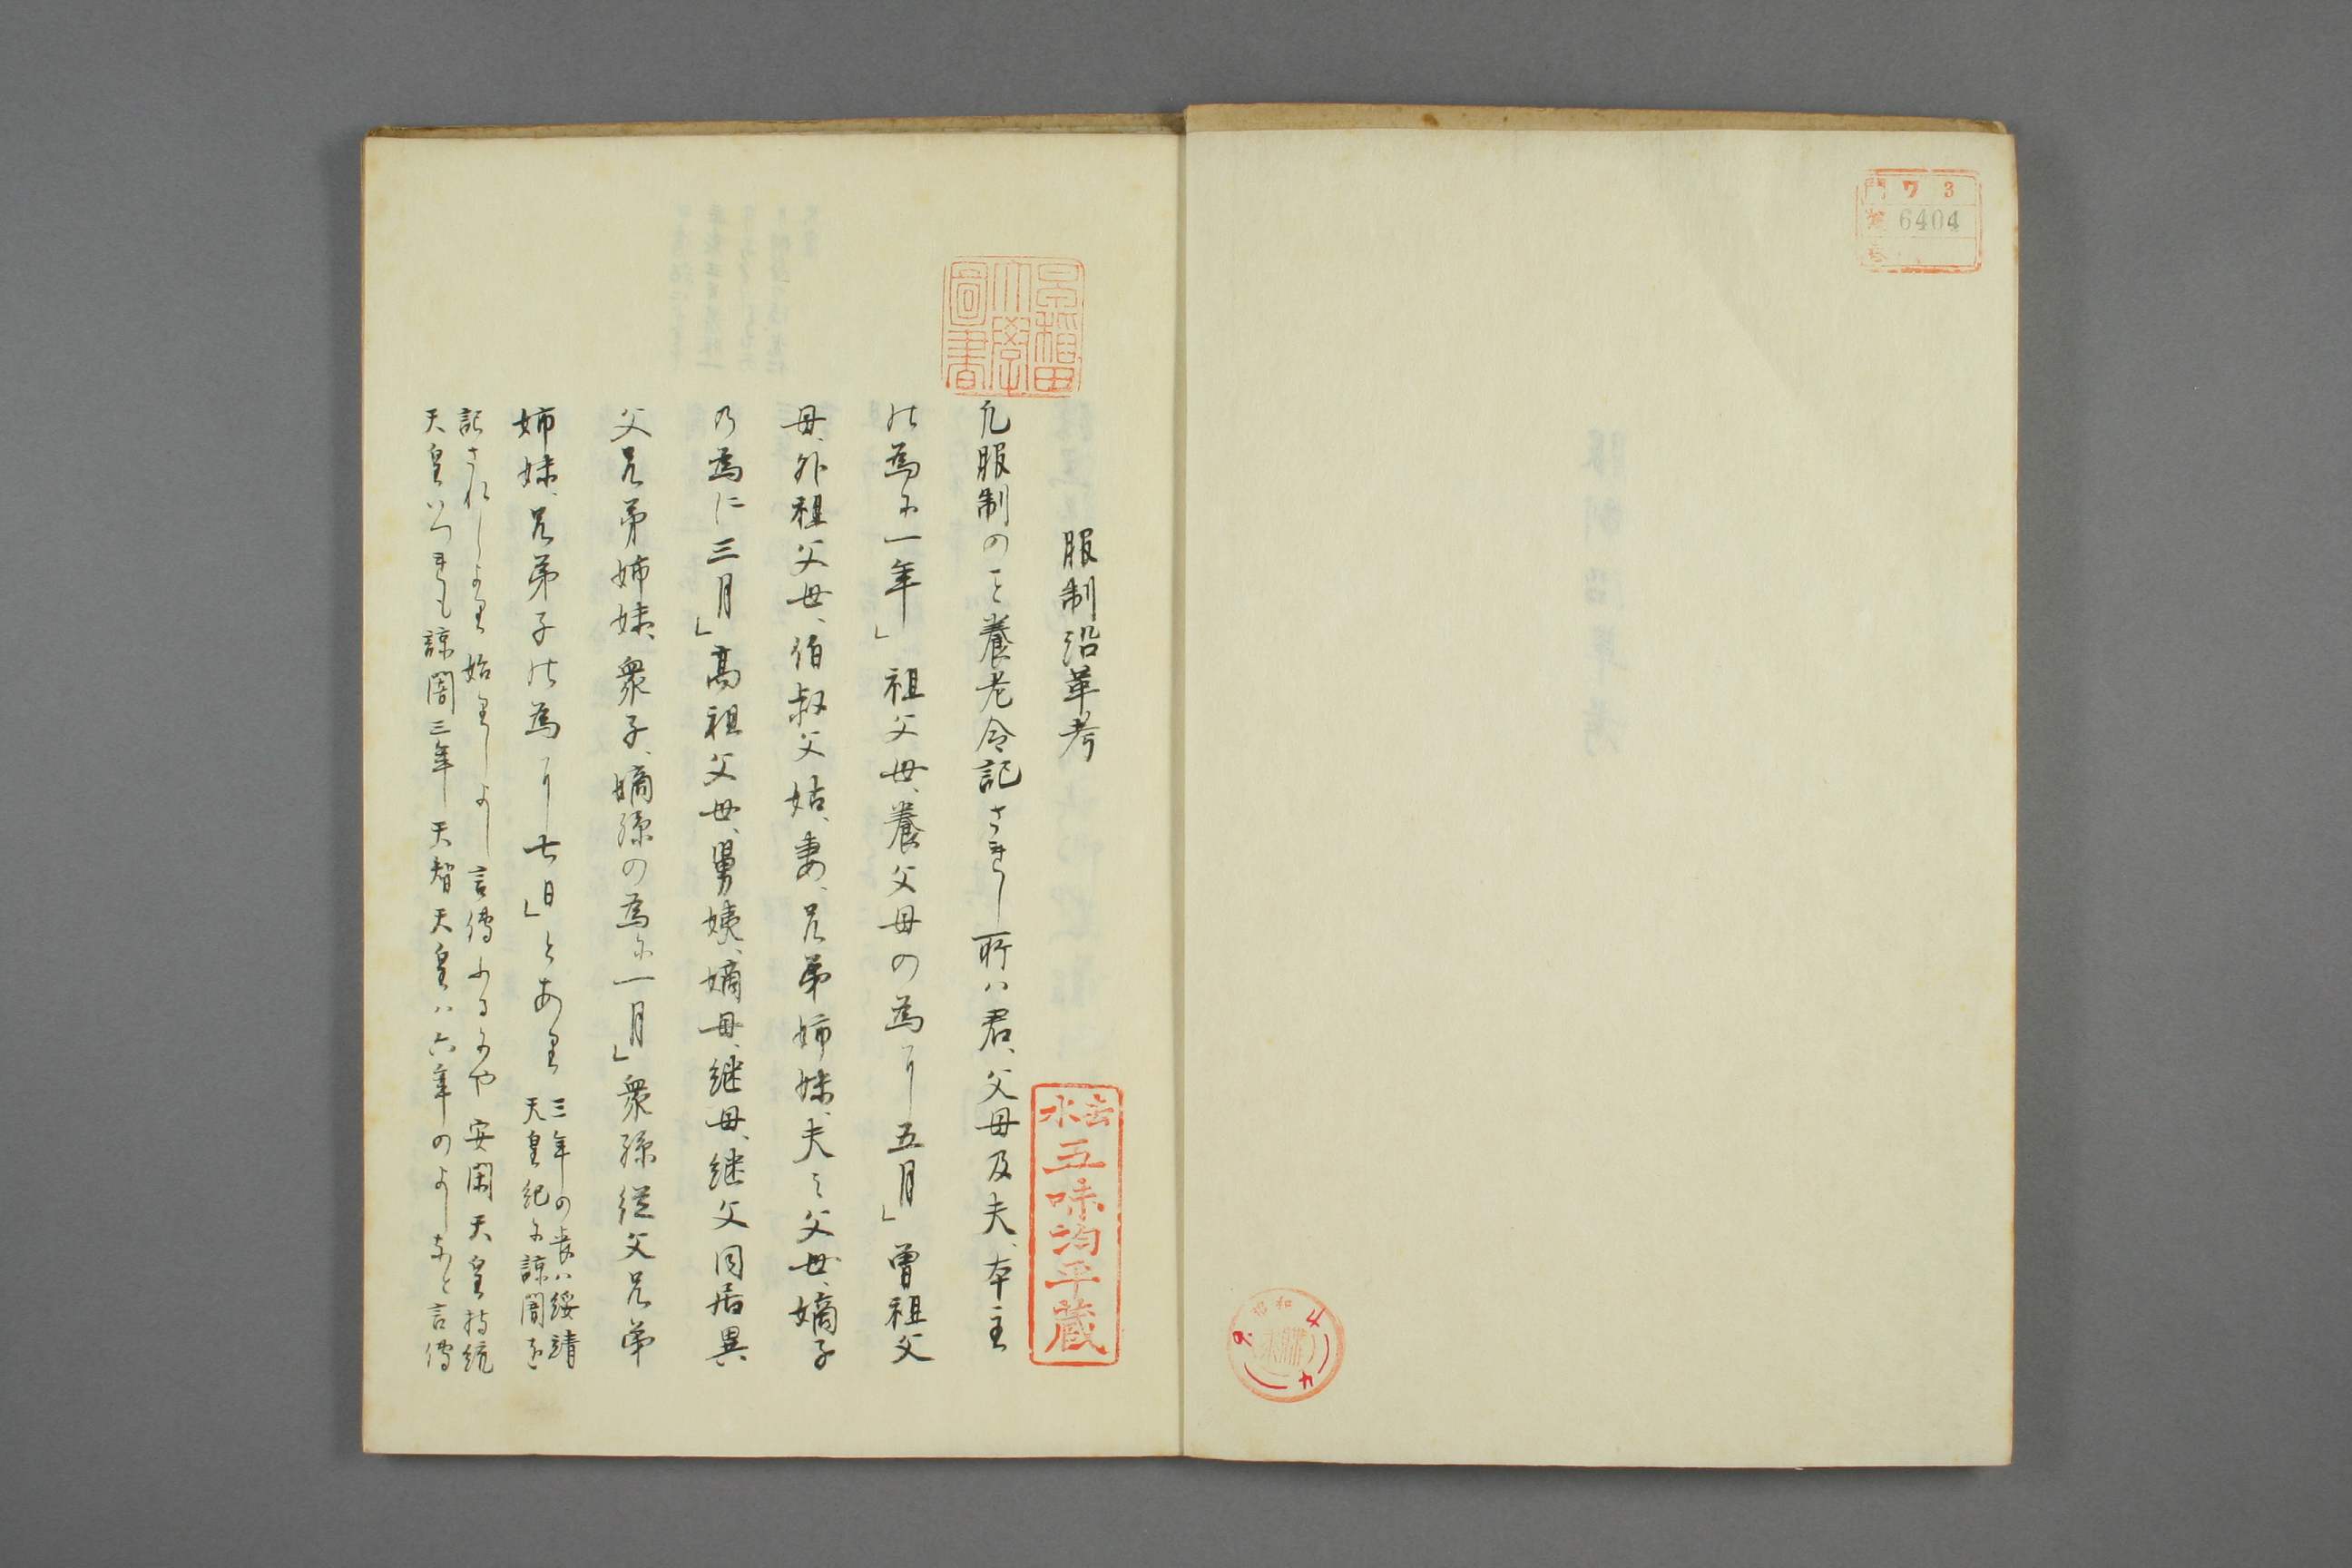 門 ワ 3
號 6404
卷
昭和
早稲田
大學
圖書
服制沿革考
去水 五味均平蔵
凢服制のこと養老令記されし所ハ君、父母及夫、本主
の為に一年」祖父母、養父母の為に五月」曽祖父
母、外祖父母、伯叔父姑、妻、兄弟姉妹、夫之父母、嫡子
の為に三月」高祖父母、舅姨、嫡母、継母、継父同居異
父兄弟姉妹、衆子、嫡孫の為に一月」衆孫従父兄弟
姉妹、兄弟子の為に七日」とあり
三年の喪ハ綏靖
天皇紀に諒闇を
記されしより始りしよし言傳ふるにや安閑天皇持統
天皇いつれも諒闇三年天智天皇ハ六年のよしなと言傳